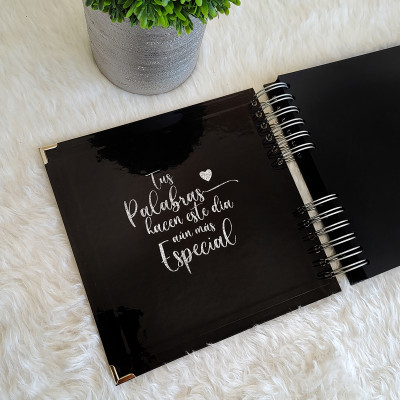 Tus
Palabras
hacen este día
aún más
Especial